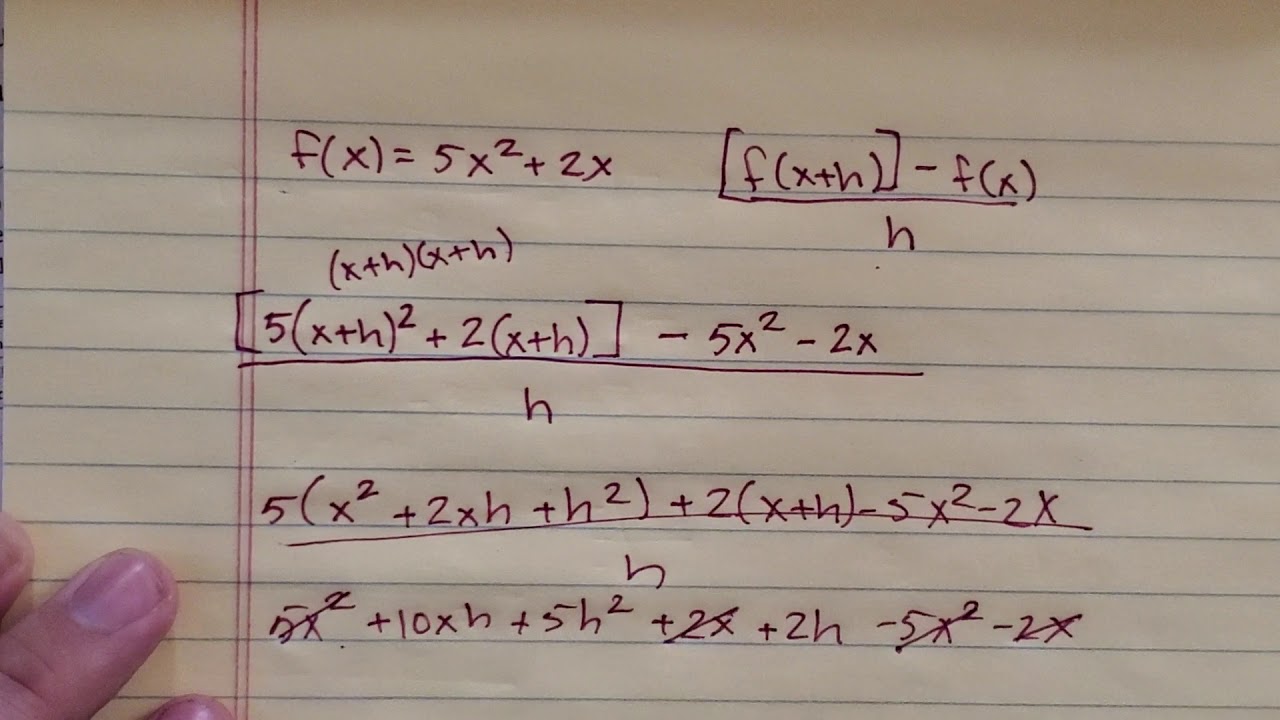 f(x) = 5x² + 2x    [f(x+h)] - f(x)
h
(x+h)(x+h)
[5(x+h)² + 2(x+h)] - 5x² - 2x
h
5(x² + 2xh + h²) + 2(x+h) - 5x² - 2x
h
5x² + 10xh + 5h² + 2x + 2h - 5x² - 2x